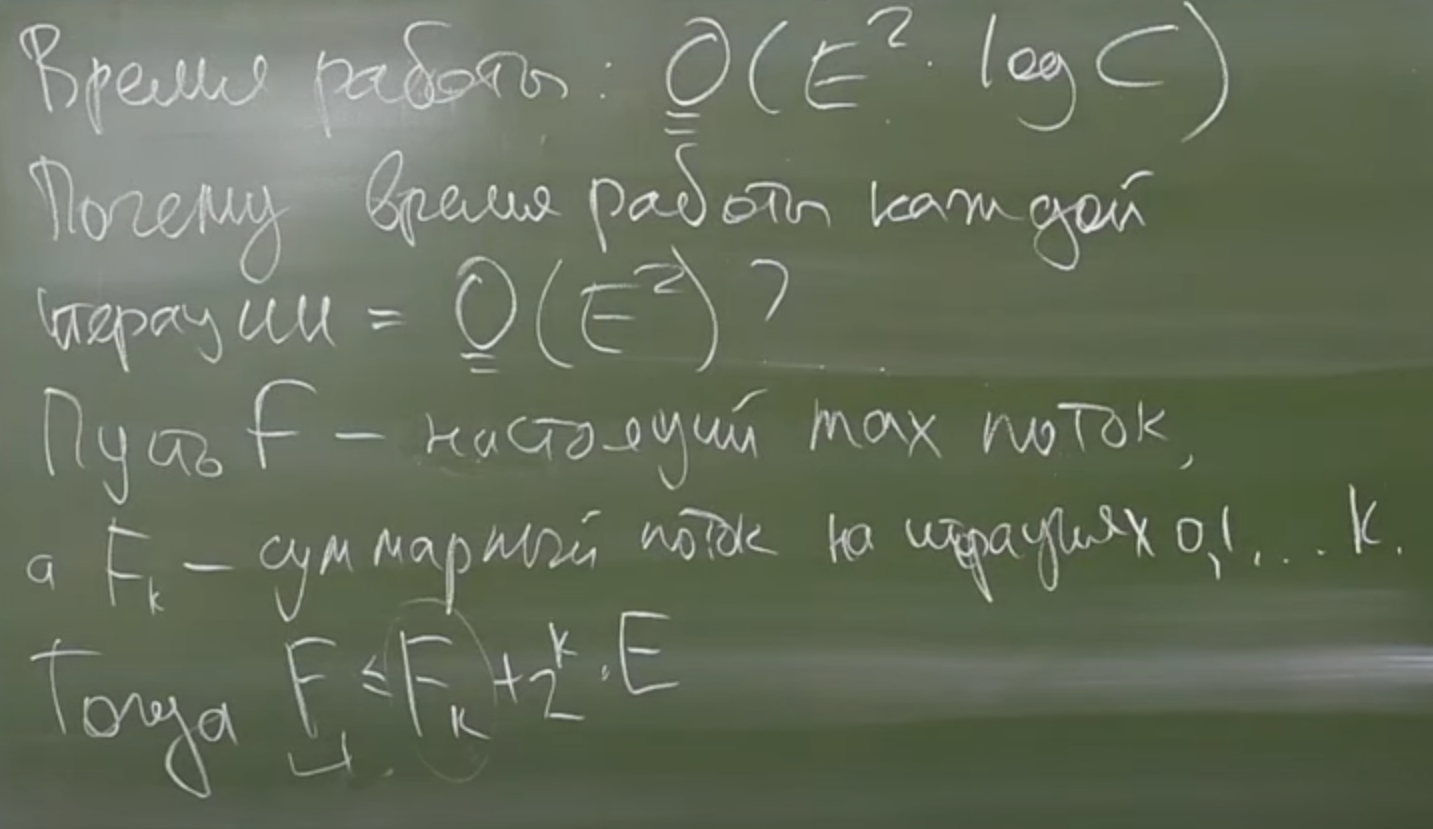 Время работы: O(E² · log C)
Почему время работы каждой
итерации = O(E²)?
Пусть F — настоящий max поток,
а Fₖ — суммарный поток на итерациях 0,1,... k.
Тогда F ≤ Fₖ + 2ᵏ · E